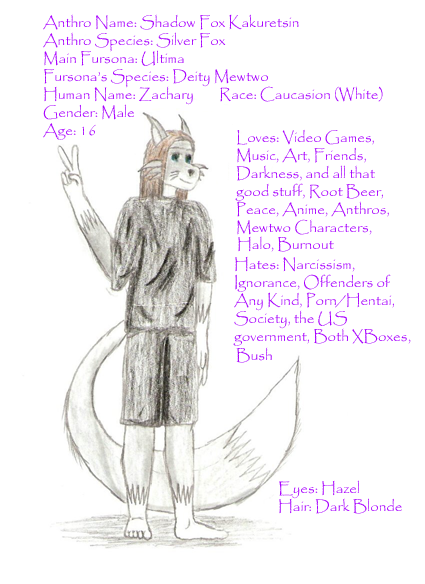 Anthro Name: Shadow Fox Kakuretsin
Anthro Species: Silver Fox
Main Fursona: Ultima
Fursona's Species: Deity Mewtwo
Human Name: Zachary Race: Caucasion (White)
Gender: Male
Age: 16
Loves: Video Games,
Music, Art, Friends,
Darkness, and all that
good stuff, Root Beer,
Peace, Anime, Anthros,
Mewtwo Characters,
Halo, Burnout
Hates: Narcissism,
Ignorance, Offenders of
Any Kind, Porn/Hentai,
Society, the US
government, Both XBoxes,
Bush
Eyes: Hazel
Hair: Dark Blonde